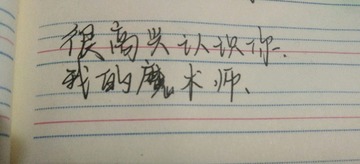 很高兴认识你.
我的魔术师、